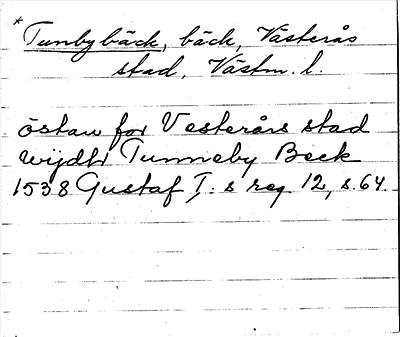 * Tunbybäck, bäck, Västerås
stad, Västm. l.
östan for Vesterårs stad
wijdtr Tunneby Beck
1538 Gustaf I:s reg 12, s. 64.